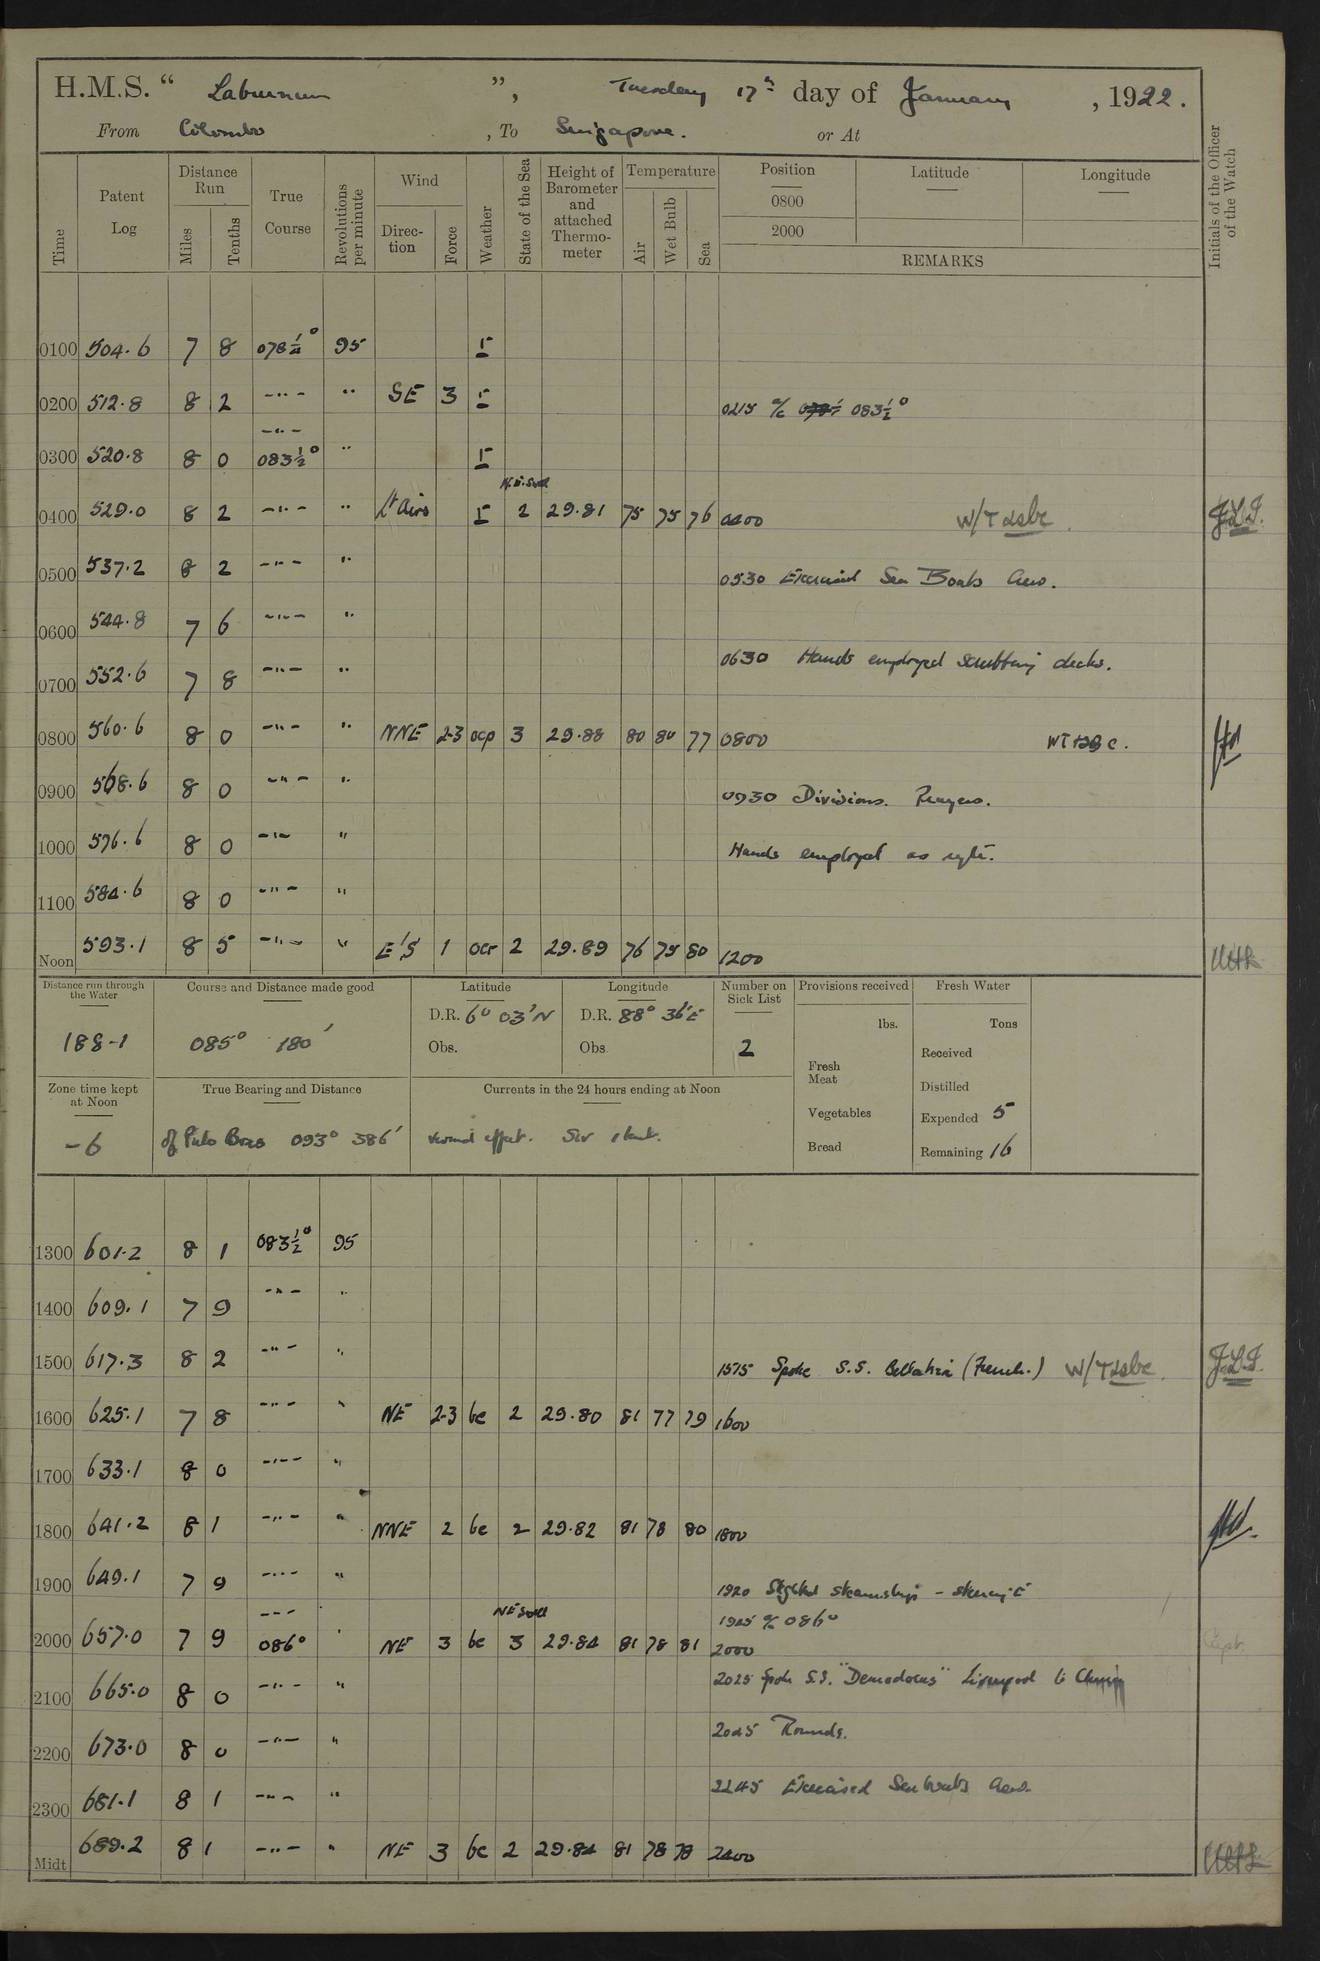 H.M.S. “ Laburnum ”, Tuesday 17th day of January, 1922.
From Colombo, To Singapore. or At
Time
Patent Log
Distance Run
Miles
Tenths
True Course
Revolutions per minute
Wind
Direction
Force
Weather
State of the Sea
Height of Barometer and attached Thermometer
Temperature
Air
Wet Bulb
Sea
Position
0800
2000
Latitude
Longitude
REMARKS
Initials of the Officer of the Watch
0100 504.6 7 8 078¼° 95
0200 512.8 8 2 -"- " SE 3 0215 a/c 083½°
-"-
0300 520.8 8 0 083½° "
0400 529.0 8 2 -"- " Lt Airs 2 29.81 75 75 76 0400 W/T J.L.J.
0500 537.2 8 2 -"- " 0530 Exercised Sea Boats Crew.
0600 544.8 7 6 -"- "
0700 552.6 7 8 -"- " 0630 Hands employed scrubbing decks.
0800 560.6 8 0 -"- " NNE 2-3 ocp 3 29.88 80 80 77 0800
0900 568.6 8 0 -"- " 0930 Divisions. Prayers.
1000 576.6 8 0 -"- " Hands employed as reqte.
1100 584.6 8 0 -"- "
Noon 593.1 8 5 -"- " E'S 1 ocr 2 29.89 76 75 80 1200
Distance run through the Water
188.1
Course and Distance made good
085° 180'
Latitude
D.R. 6° 03' N
Obs.
Longitude
D.R. 88° 36' E
Obs.
Number on Sick List
2
Provisions received
lbs.
Fresh Meat
Vegetables
Bread
Fresh Water
Tons
Received
Distilled
Expended 5
Remaining 16
Zone time kept at Noon
-6
True Bearing and Distance
of Pulo Bras 093° 386'
Currents in the 24 hours ending at Noon
1300 601.2 8 1 083½° 95
1400 609.1 7 9 -"- "
1500 617.3 8 2 -"- " 1515 Spoke S.S. (French.) W/T J.L.J.
1600 625.1 7 8 -"- " NE 2-3 bc 2 29.80 81 77 79 1600
1700 633.1 8 0 -"- "
1800 641.2 8 1 -"- " NNE 2 bc 2 29.82 81 78 80 1800
1900 649.1 7 9 -"- " 1920 Sighted steamships - steering E
-"- NE Swell 1925 a/c 086°
2000 657.0 7 9 086° " NE 3 bc 3 29.84 81 78 81 2000
2100 665.0 8 0 -"- " 2025 Spoke S.S. "Demodocus" Liverpool to
2200 673.0 8 0 -"- " 2045 Rounds.
2300 681.1 8 1 -"- " 2245 Exercised Sea boats Crew.
Midt 689.2 8 1 -"- " NE 3 bc 2 29.84 81 78 78 2400